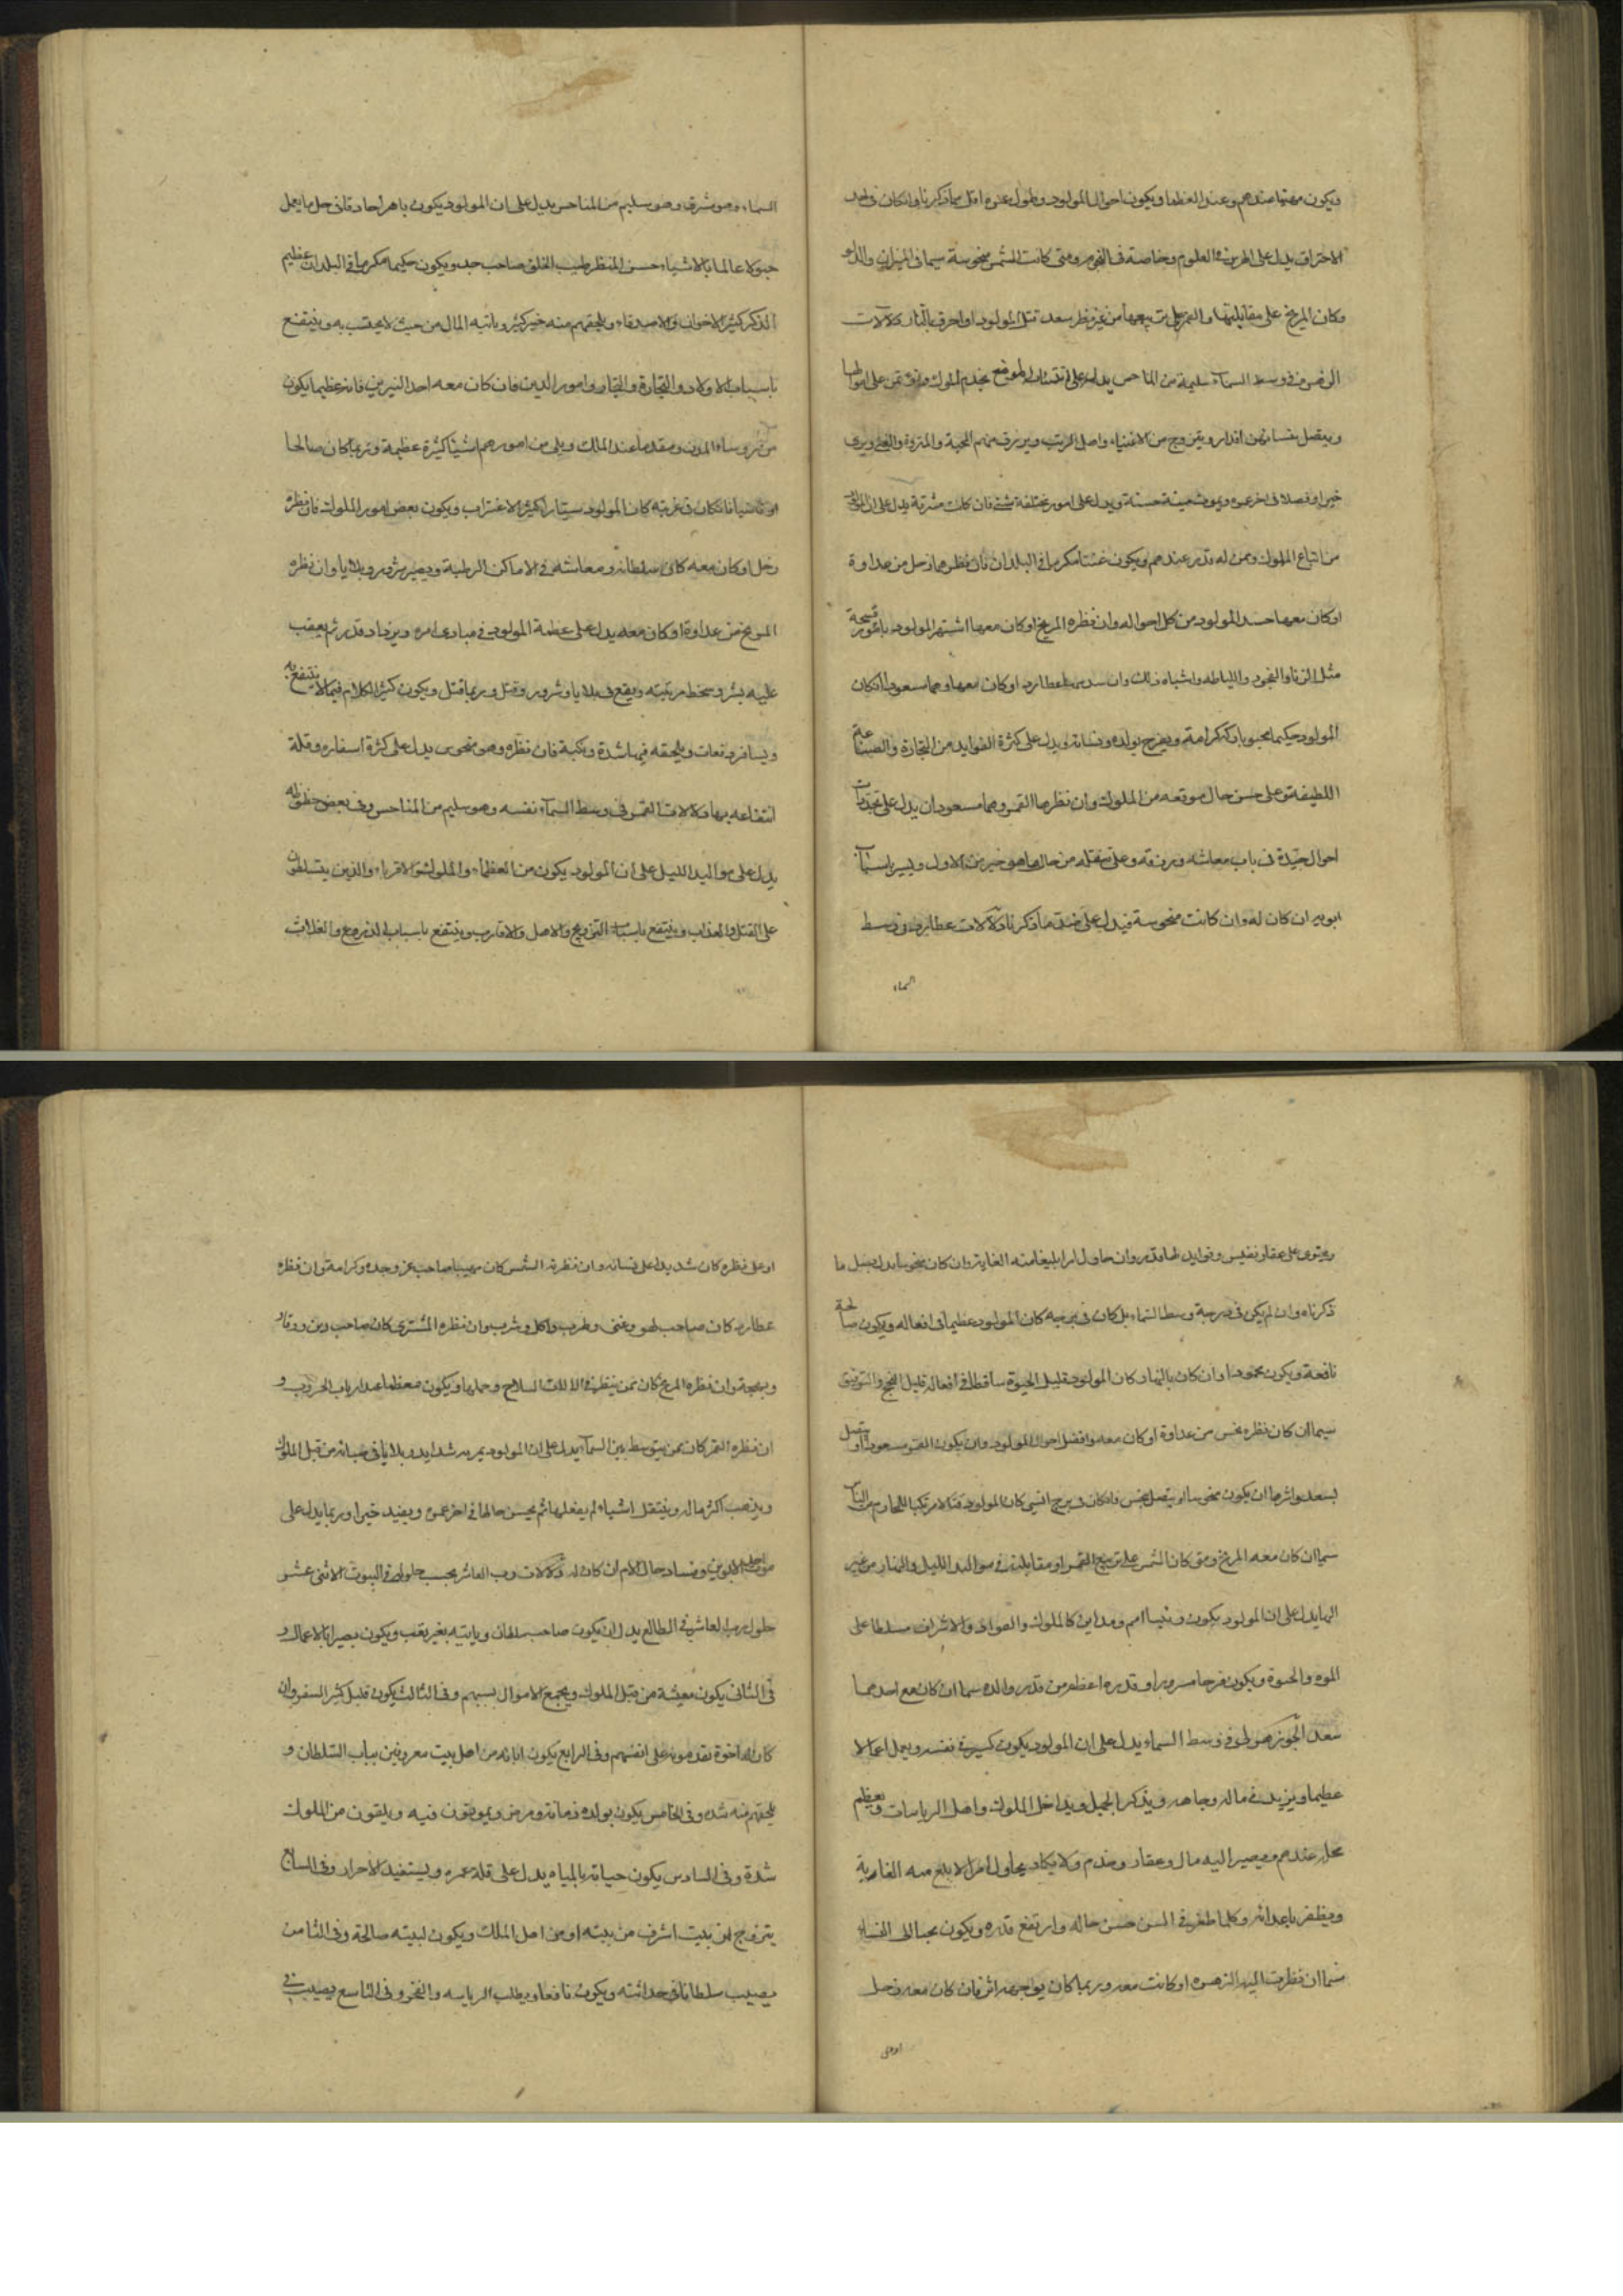 ويكون مهيبا عندهم وعند العظما ويكون احوال المولود وطول عمره اقل مما ذكرنا وان كان في حد
الاحتراق يدل على العلوم وخاصة في النجوم ومتى كانت الشمس منحوسة سيما في الميزان والدلو
وكان المريخ على مقابلتها والقمر على تربيعها من غير نظر سعد قتل المولود او احرق بالنار دلالات
الزهرة في وسط السماء سليمة من المناحس يدل على ان المولود يخدم الملوك على اموالها
ويتصل بنسائهن اقدار ويتزوج من الاغنياء واصل الرتب ويرزق منهم المحبة والثروة والغنى ويرى
خيرا وفضلا في اخر عمره ويموت ميتة حسنة ويدل على امور مختلفة شتى فان كانت مشرقة يدل على ان المولود
من اتباع الملوك وممن له قدر عندهم ويكون غنيا مكرما في البلدان فان نظرهما زحل من عداوة
او كان معها حسد المولود من كل احواله وان نظره المريخ او كان معها اشتهر المولود بامور قبيحة
مثل الزنا والفجور واللياطه واشباه ذلك وان عطارد او كان معها وهما مسعودان كان
المولود حكيما محبوبا وكرامة ويفرح بولده ونسائه ويدل على كثرة الفوايد من التجارة والصناعة
اللطيفة وعلى حسن حال موقعه من الملوك وان نظرها القمر وهما مسعودان يدل على تجددات
احوال جيدة في باب معاشه ورزقه وعلى تنقله من حال ما هو خير من الاول ويسير باسباب
ابويه ان كان له وان كانت منحوسة فيدل على ضد ما ذكرنا دلالات عطارد في وسط
السماء
السماء وهو مشرق وهو سليم من المناحس يدل على ان المولود يكون باهرا حاذقا في حل ما يعمل
عالما بالاشياء حسن المنظر طيب الخلق صاحب جد ويكون حكيما مكرما في البلدان عظيم
الذكر كثير الاخوان والاصدقاء ويلحقهم منه خير كثير وياتيه المال من حيث لا يحتسب به وينتفع
باسباب الاولاد والتجارة والتجار وامور الدين فان كان معه احد النيرين فانه عظيما يكون
من رؤساء المدن ومقدما عند الملك ويلي من امورهم اشيا كثيرة عظيمة وربما كان صالحا
او قاضيا فان كان في غربته كان المولود سيارا كثير الاغتراب ويكون بعض امور الملوك فان نظره
زحل او كان معه كان سلطانه ومعاشه في الاماكن الرطبة ويصير شرور وبلايا وان نظره
المريخ من عداوة او كان معه يدل على عظمة المولود في مبادي امره ويزداد قدره ثم يعقب
عليه بشر ويحط مرتبته ويقع في بلايا وشرور وقتل وربما قتل ويكون كثير الكلام فيما لا ينتفع به
ويسافر دفعات ويلحقه فيها شدة ونكبة فان نظره وهو منحوس يدل على كثرة اسفاره وقلة
انتفاعه بها دلالات القمر في وسط السماء نفسه وهو سليم من المناحس وفي بعض حظوظه
يدل على مواليد الليل على ان المولود يكون من العظماء والملوك والاقرباء والذين يتسلطون
على القتل والعذاب وينتفع باسباب التزويج والاصل والاقارب وينتفع باسباب الزرع والغلات
ويحتوى على عقار نفيس وفوايد لها قدر وان حاول امرا بلغا منه الغاية وان كان منحوسا بدل ما
ذكرناه وان لم يكن في درجة وسط السماء بل كان في برجه كان المولود عظيما في افعاله ويكون صالحة
نافعة ويكون محمودا وان كان بالنهار كان المولود قليل الحيوة ساقطا في افعاله قليل النجح والتوفيق
سيما ان كان نظره نحس من عداوة او كان معه وافضل احوال المولود وان يكون القمر مسعودا او متصل
بسعد واشرها ان يكون منحوسا او يتصل بنحس فان كان في برج انسي كان المولود قتالا مرتكبا للمحارم من الناس
سيما ان كان معه المريخ ومتى كان الشمس على تربيع القمر او مقابلته في مواليد الليل والنهار من غير
يدل على ان المولود يكون امم ومداين كالملوك والقواد والاشراف مسلطا على
الموت والحيوة ويكون فرحا مسرورا وقدره اعظم من قدر والده سيما ان كان مع احدهما
سعد الجوزهر في وسط السماء يدل على ان المولود يكون كبير في نفسه ويعمل اعمالا
عظيما ويزيد في ماله وجاهه ويذكر الجميل ويداخل الملوك واهل الرياسات ويعظم
محله عندهم ويصير اليه مال وعقار وخدم ولا يكاد يحاول امرا الا بلغ منه الغاية
ويظفر باعدائه وكلما طعن في السن حسن حاله وارتفع قدره ويكون محبا الى النساء
سيما ان نظرت اليه الزهره او كانت معه وربما كان بوجهه اثر فان كان معه زحل
او على
او على نظره كان شديدا على نسائه وان نظرته الشمس كان مهيبا صاحب عز وجده وكرامة وان نظره
عطارد كان صاحب لهو وغنى وطرب واكل وشرب وان نظره المشترى كان صاحب دين ووقار
وبهجة وان نظره المريخ كان ممن ينظر في الالات السلاح وحملها ويكون معظما عند ارباب الحروب و
ان نظره القمر كان ممن يتوسط بين السماء يدل على ان المولود يمر به شدايد وبلايا في حياته من قبل الملوك
ويذهب اكثر ماله وينتقل اشياء لم يفعلها ثم يحسن حالها في اخر عمره ويفيد خيرا وربما يدل على
موت احد الابوين وفساد حال الام ان كان له دلالات رب العاشر بحسب حلوله في البيوت الاثنى عشر
حلول رب العاشر في الطالع يدل ان يكون صاحب سلطان وياتيه بغير تعب ويكون بصيرا بالاعمال و
في الثاني يكون معيشة من قبل الملوك ويجمع الاموال بسببهم وفي الثالث يكون قليل كثير السفر وان
كان له اخوة يقدمونه على انفسهم وفي الرابع يكون اباؤه من اهل بيت معروفين بباب السلطان و
يلحقهم منه شده وفي الخامس يكون بولده زمانة ومرض ويموتون فيه ويلقون من الملوك
شدة وفي السادس يكون حياته بالمياه يدل على قلة عمره ويستفيد الاحرار وفي السابع
يتزوج من بيت اشرف من بيته او من اهل الملك ويكون لبيته صالحة وفي الثامن
يصيب سلطانا في حداثته ويكون نافعا ويطلب الرياسه والفخر وفي التاسع يصيب في